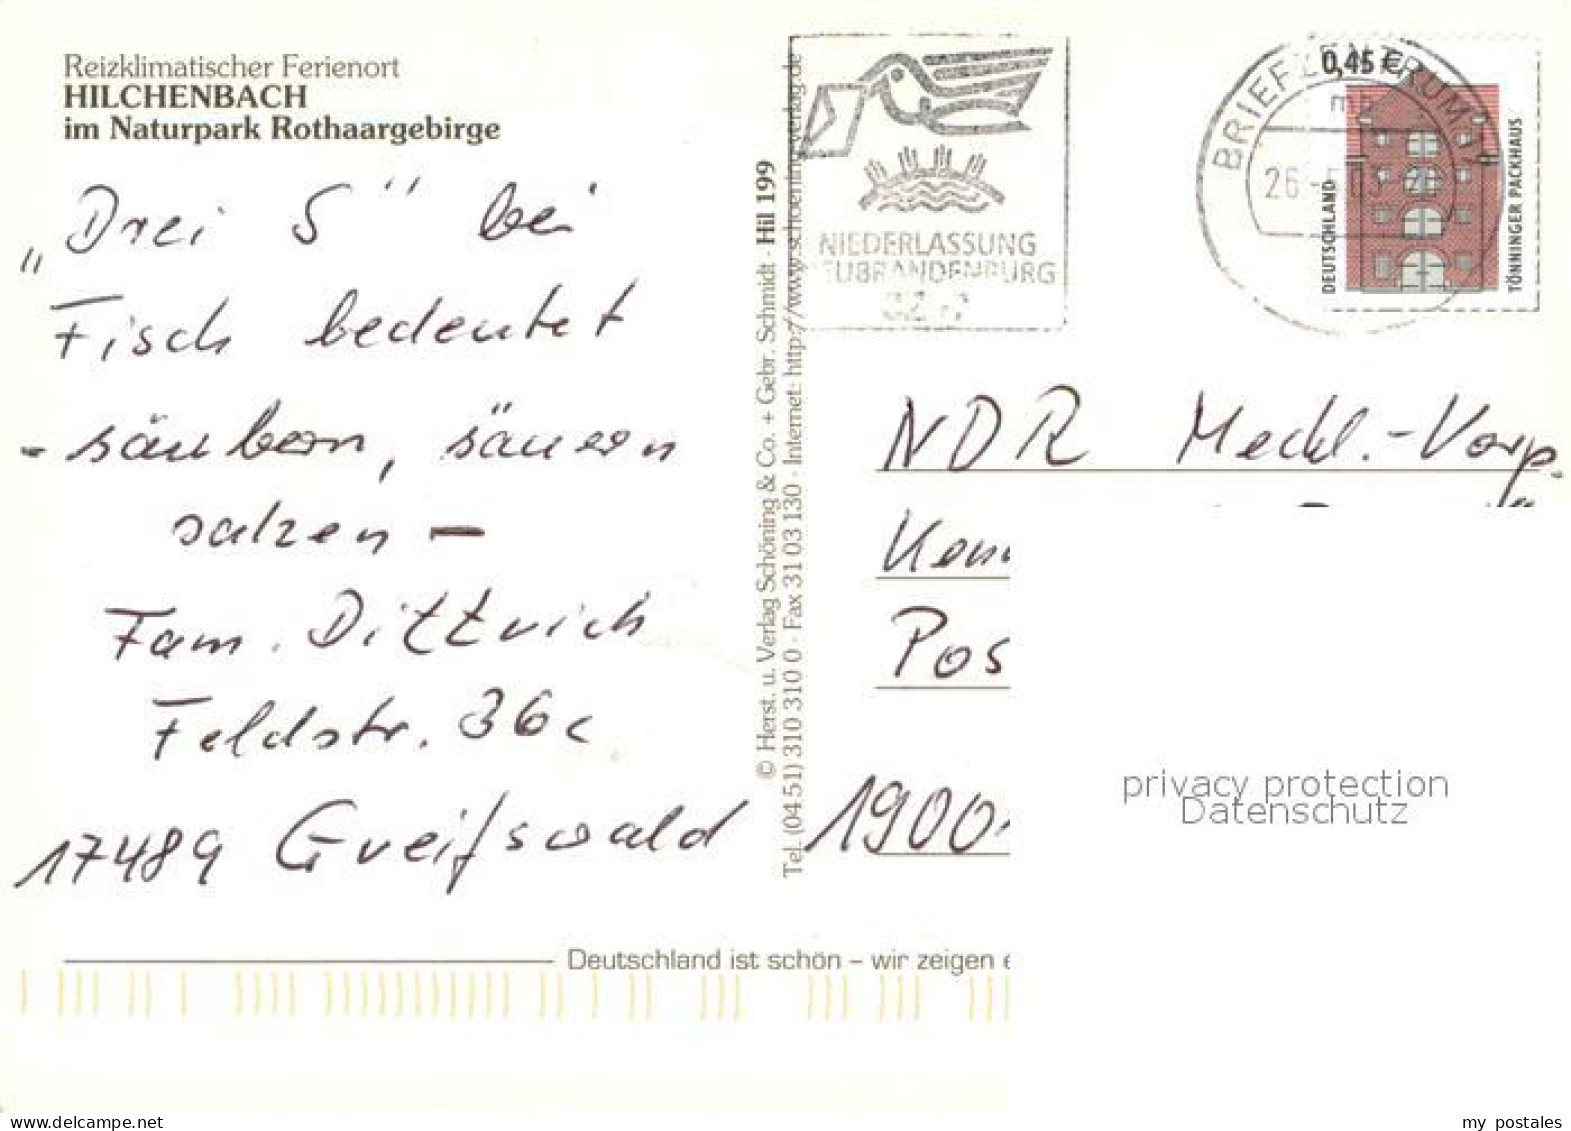 Reizklimatischer Ferienort
HILCHENBACH
im Naturpark Rothaargebirge
„Drei S" bei
Fisch bedeutet
- säubern, säuern
salzen -
Fam. Dittrich
Feldstr. 36c
17489 Greifswald
© Herst. u. Verlag Schöning & Co. + Gebr. Schmidt · Hil 199
Tel. (04 51) 310 310 0 · Fax 31 03 130 · Internet: http://www.schoening-verlag.de
NIEDERLASSUNG
EUBRANDENBURG
BRIEFZENTRUM
26
0,45 €
DEUTSCHLAND
TÖNNINGER PACKHAUS
NDR Meckl.-Vorp.
Pos
1900
privacy protection
Datenschutz
Deutschland ist schön – wir zeigen e
my postales